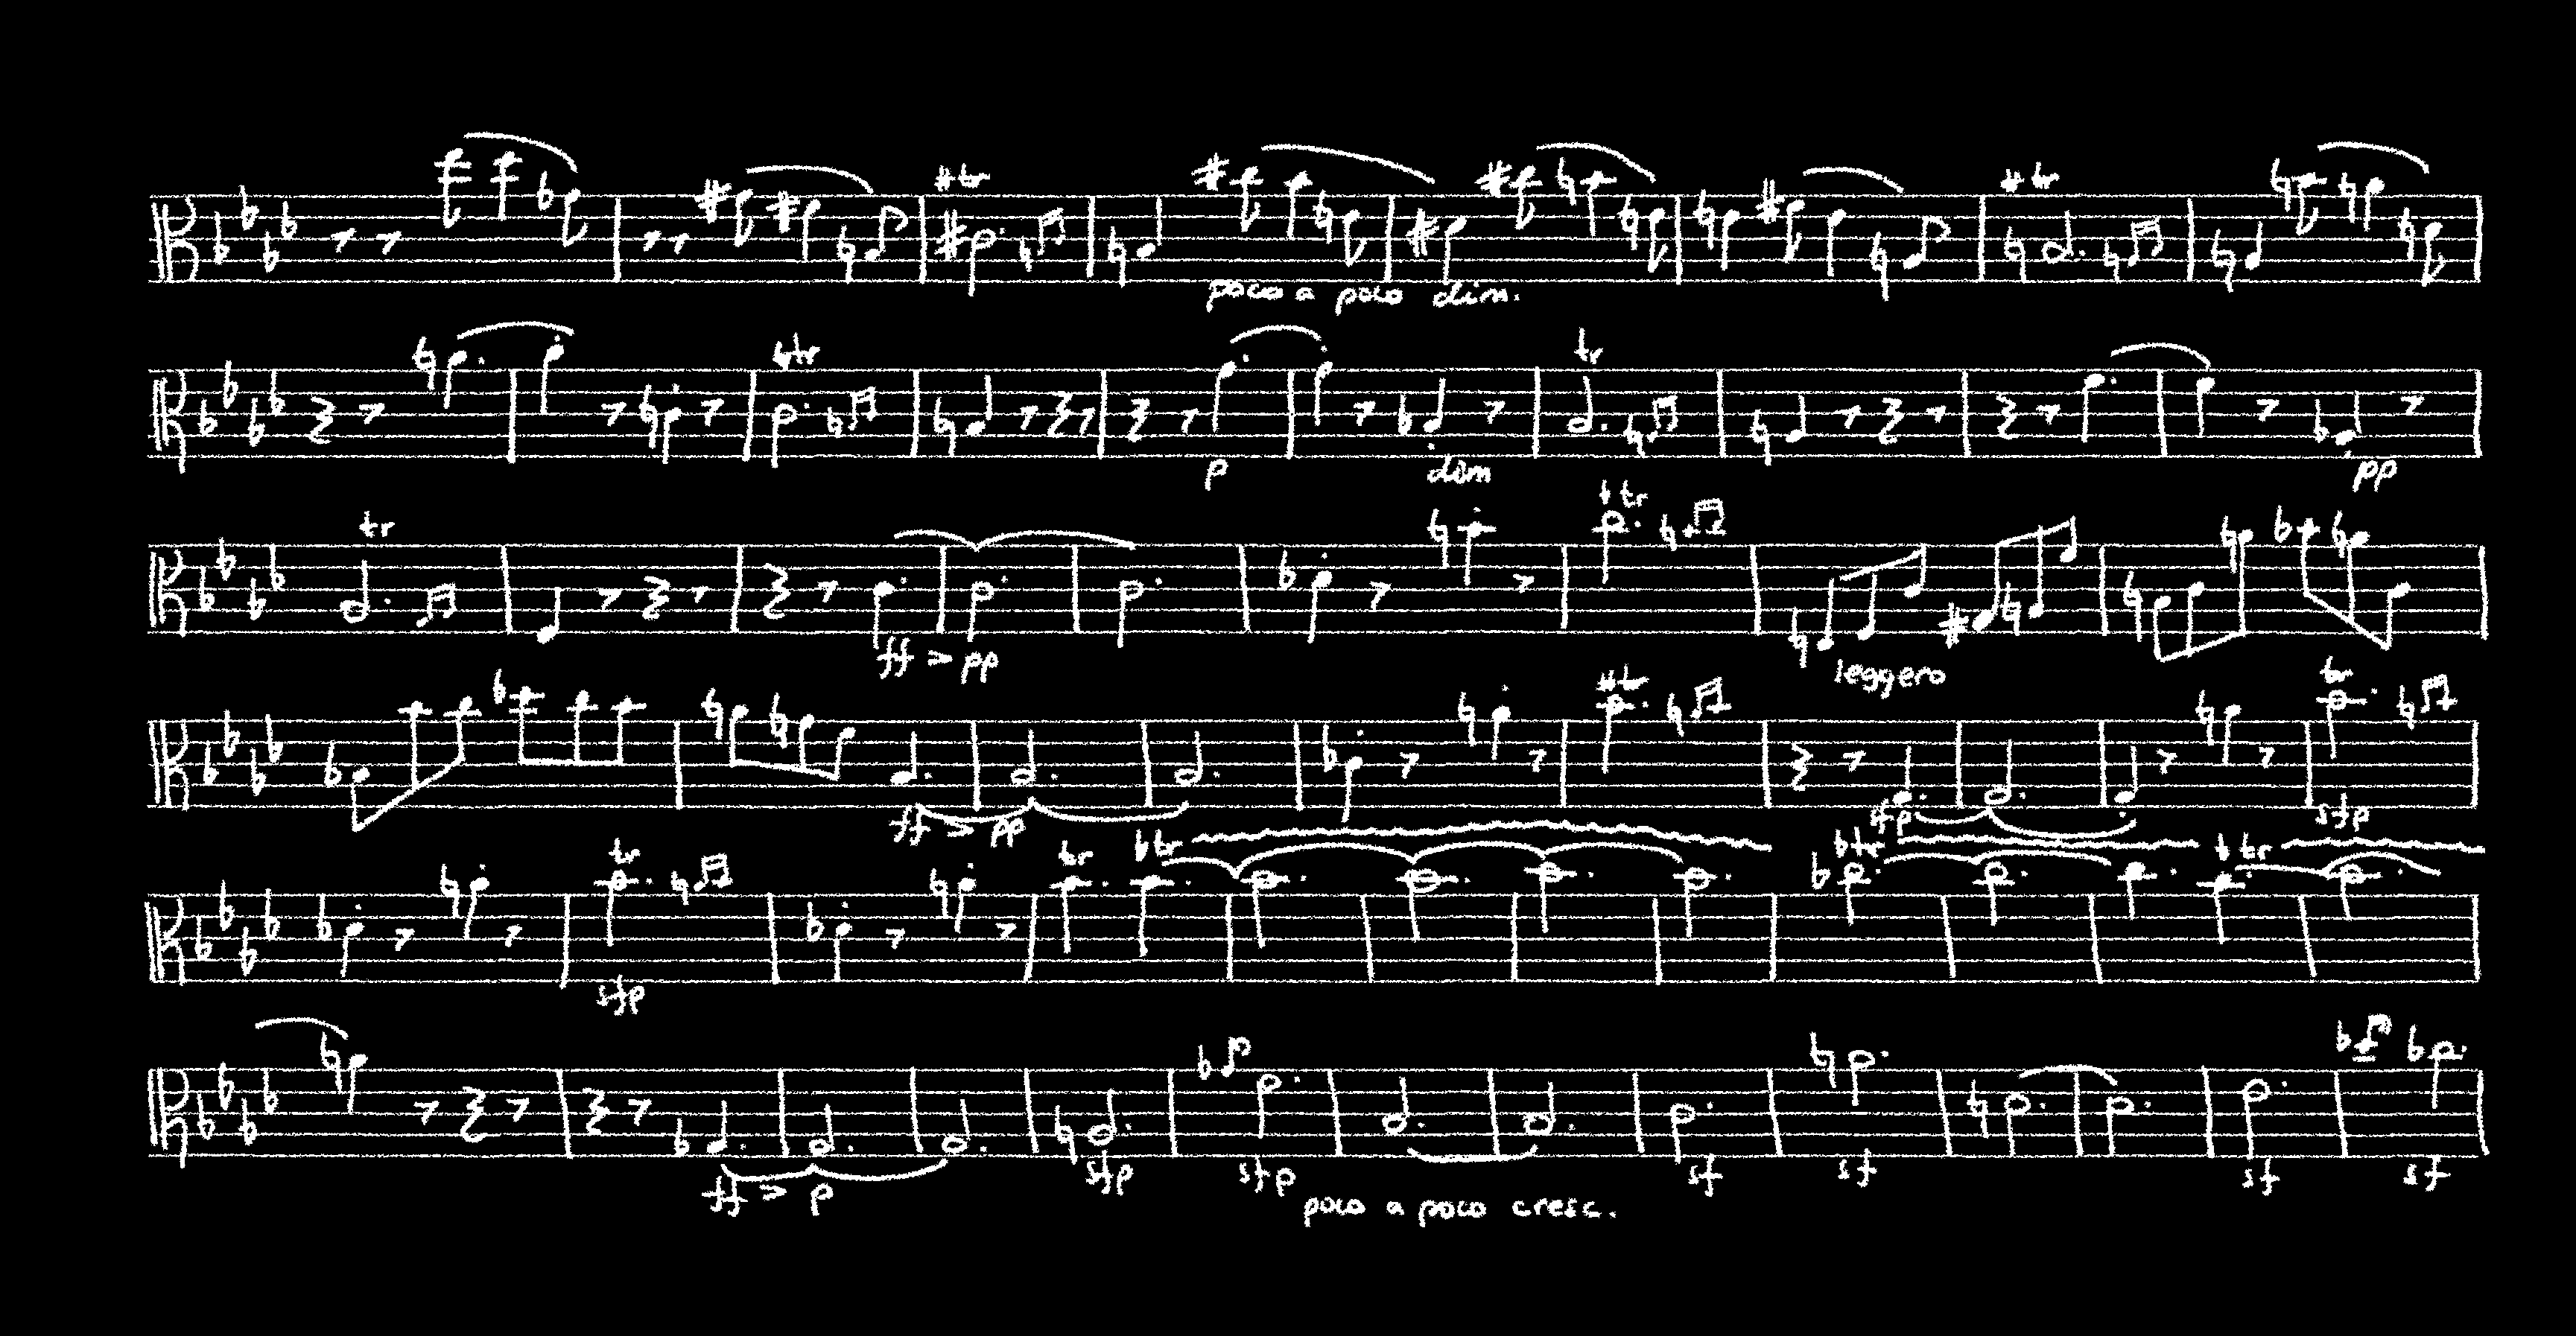 tr tr
poco a poco dim.
tr tr
p dim pp
tr tr
ff > pp leggero
tr tr
ff > pp sfp sfp
tr tr tr tr tr
sfp
ff > p sfp sfp sf sf sf sf
poco a poco cresc.